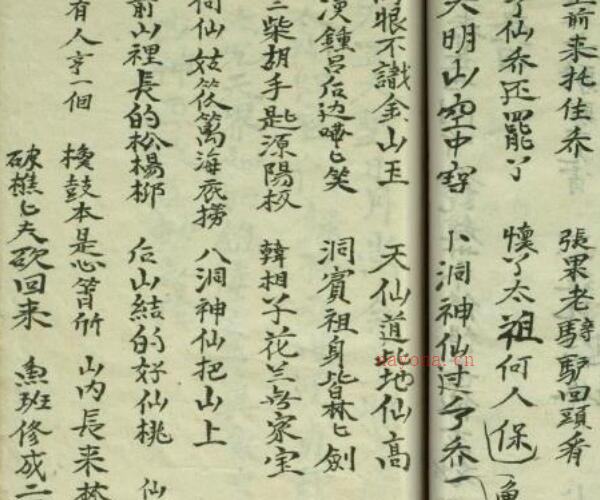 前来托住乔 張果老騎驴回頭看
了仙乔还罷了 懷了太祖何人保 魚
大明山空中穿 卜洞神仙过了乔 一
眼不識金山玉 天仙道比地仙高
漢鍾吕后边嘻匕笑 洞賓祖身皆林匕劍
柴胡手匙源陽板 韓相子花兰無家宝
何仙姑笊篱海底捞 八洞神仙把山上
前山裡長的松楊柳 后山結的好仙桃 仙
有人亨一個 梭鼓本是心筲所 山内長来
破樵匕夫欲回来 魚班修成二
nayona.cn